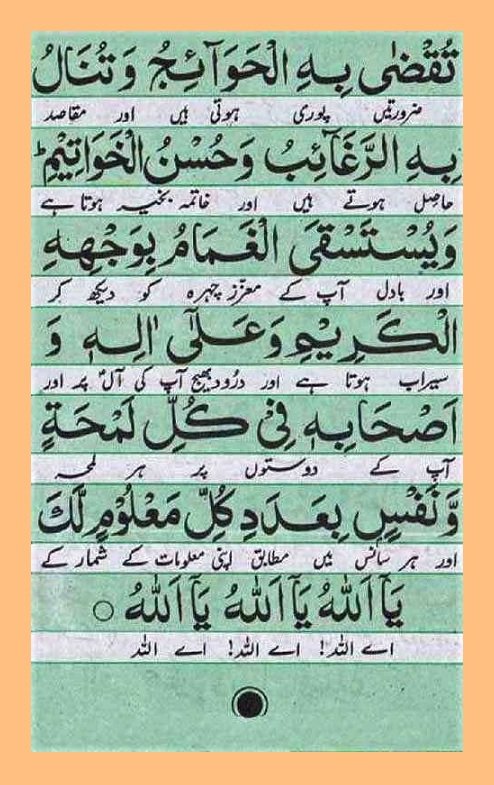 تُقْضٰى بِهِ الْحَوَآئِجُ وَتُنَالُ
ضرورتیں پوری ہوتی ہیں اور مقاصد
بِهِ الرَّغَآئِبُ وَحُسْنُ الْخَوَاتِيْمِ ط
حاصل ہوتے ہیں اور خاتمہ بخیر ہوتا ہے
وَيُسْتَسْقَى الْغَمَامُ بِوَجْهِهِ
اور بادل آپ کے معزز چہرہ کو دیکھ کر
الْكَرِيْمِ وَعَلٰٓى اٰلِهٖ وَ
سیراب ہوتا ہے اور درود بھیج آپ کی آلؑ پر اور
اَصْحَابِهٖ فِيْ كُلِّ لَمْحَةٍ
آپ کے دوستوں پر ہر لمحہ
وَّنَفَسٍ بِعَدَدِ كُلِّ مَعْلُوْمٍ لَّكَ
اور ہر سانس میں مطابق اپنی معلومات کے شمار کے
يَآ اَللهُ يَآ اَللهُ يَآ اَللهُ ○
اے اللہ! اے اللہ! اے اللہ